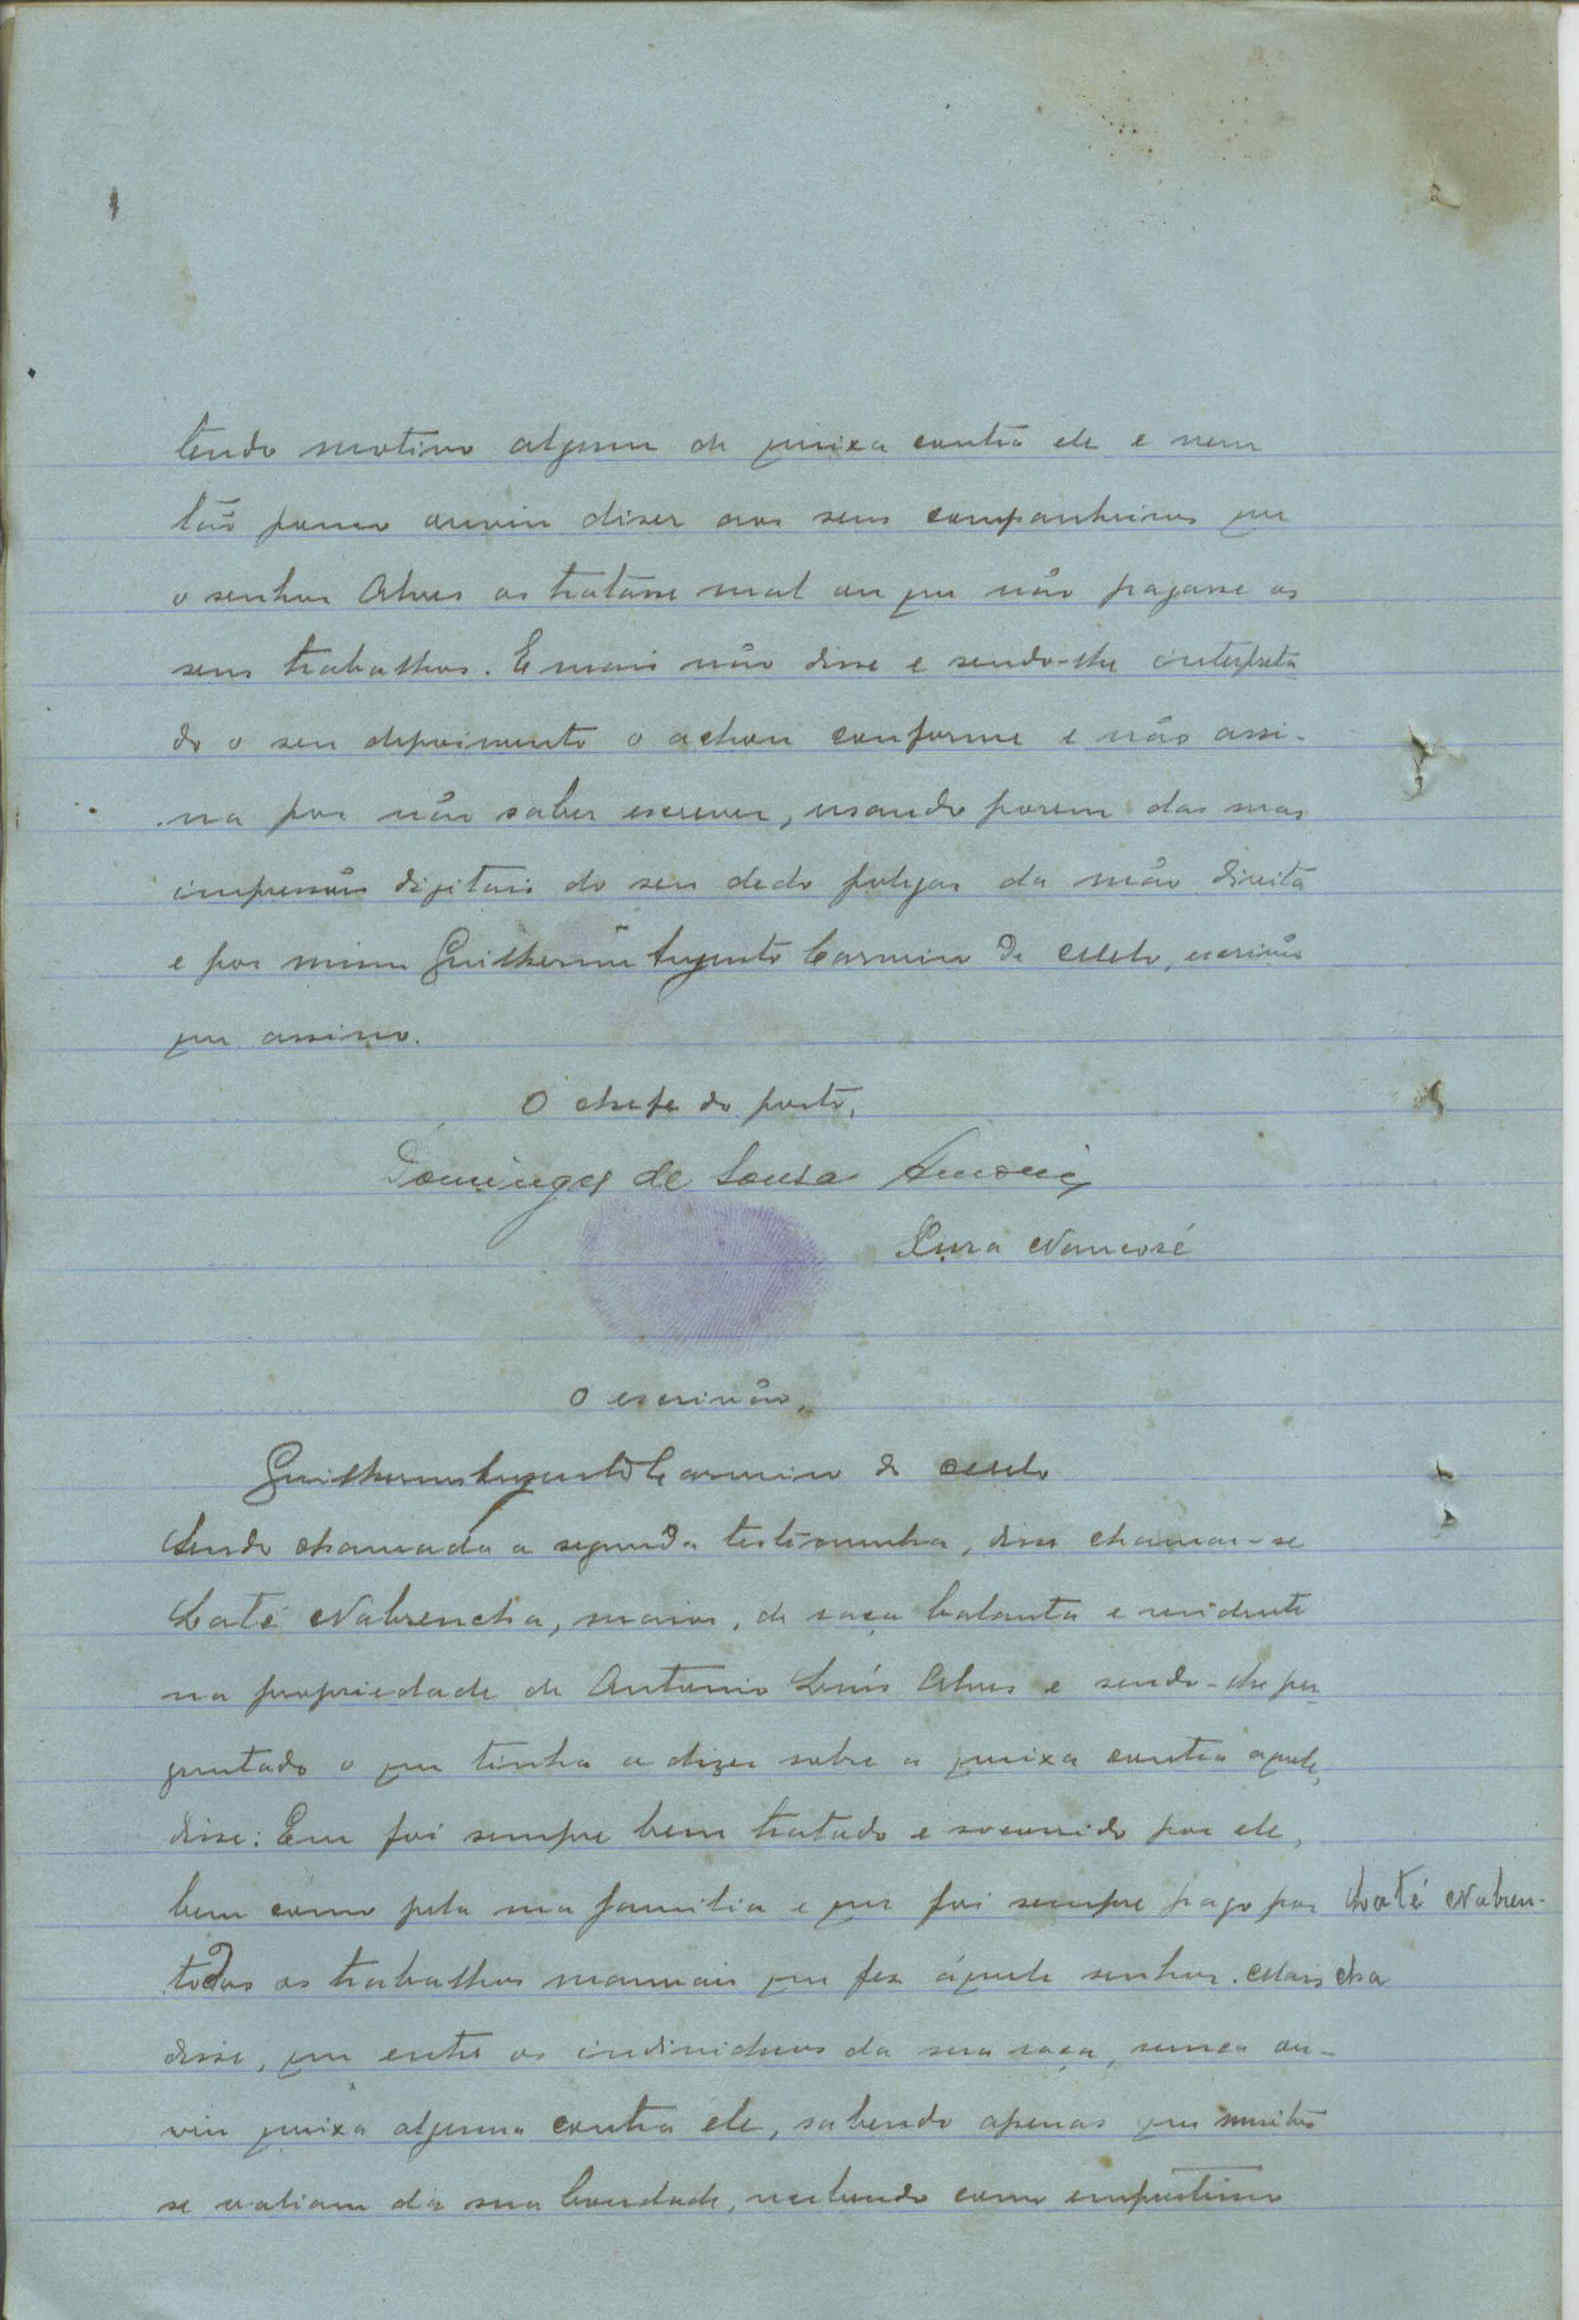 tendo motivo algum de queixa contra ele e nem
tão pouco ouviu diser aos seus companheiros que
o senhor Alves os tratasse mal ou que não pagasse os
seus trabalhos. E mais não disse e sendo-lhe interpreta
do o seu depoimento o achou conforme e não assi-
na por não saber escrever, usando porem das suas
impressões digitais do seu dedo polegar da mão direita
e por mim Guilherme Augusto Carmino de Melo, escrivão
que assino.
O chefe do posto,
Domingos de Sousa
Nancoré
O escrivão,
Guilherme Augusto Carmino de Melo
Sendo chamada a segunda testemunha, disse chamar-se
Laté Nabrencha, maior, de raça balanta e residente
na propriedade de Antonio Luís Alves e sendo-lhe per
guntado o que tinha a dizer sobre a queixa contra aquele,
disse: Em foi sempre bem tratado e socorrido por ele,
bem como pela sua familia e que foi sempre pago por Laté Nabren-
todos os trabalhos manuais que fez áquele senhor. Mais cha
disse, que entre os individuos da sua raça, nunca ou-
viu queixa alguma contra ele, sabendo apenas que muitos
se valiam da sua bondade, recebendo como emprestimo